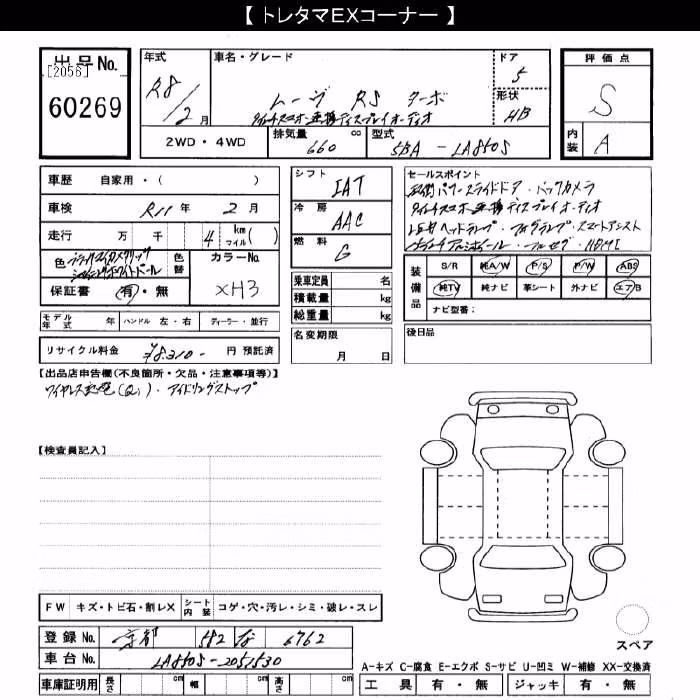 【 トレタマEXコーナー 】
出品No. [2056] 60269
年式 R8/2月
車名・グレード ムーヴ RS ターボ
9インチスマホ連携ディスプレイオーディオ
ドア 5
形状 HB
評価点 S
内装 A
2WD・4WD
排気量 660 cc
型式 5BA-LA850S
車歴 自家用・( )
車検 R11年 2月
走行 万 千 4 km マイル( )
色 ブラックマイカメタリック
シャイニングホワイトパール
色替
カラーNo. XH3
保証書 有・無
シフト IAT
冷房 AAC
燃料 G
乗車定員 名
積載量 kg
総重量 kg
名変期限 月 日
セールスポイント
両側パワースライドドア・バックカメラ
9インチスマホ連携ディスプレイオーディオ
LEDヘッドランプ・フォグランプ・スマートアシスト
アルミホイール・フルセグ・HDMI
装備品
S/R 純A/W P/S P/W ABS
純TV 純ナビ 革シート 外ナビ エアB
ナビ型番:
モデル年式 年 ハンドル 左・右 ディーラー・並行
後日品
リサイクル料金 ¥8,310- 円 預託済
【出品店申告欄(不良箇所・欠品・注意事項等)】
ワイヤレス充電(Qi)・アイドリングストップ
【検査員記入】
FW キズ・トビ石・割レX シート内装 コゲ・穴・汚レ・シミ・破レ・スレ
登録No. 京都 582 6762
車台No. LA850S-2051530
スペア
A-キズ C-腐食 E-エクボ S-サビ U-凹ミ W-補修 XX-交換済
車庫証明用 長さ cm 幅 cm 高さ cm
工具 有・無 ジャッキ 有・無